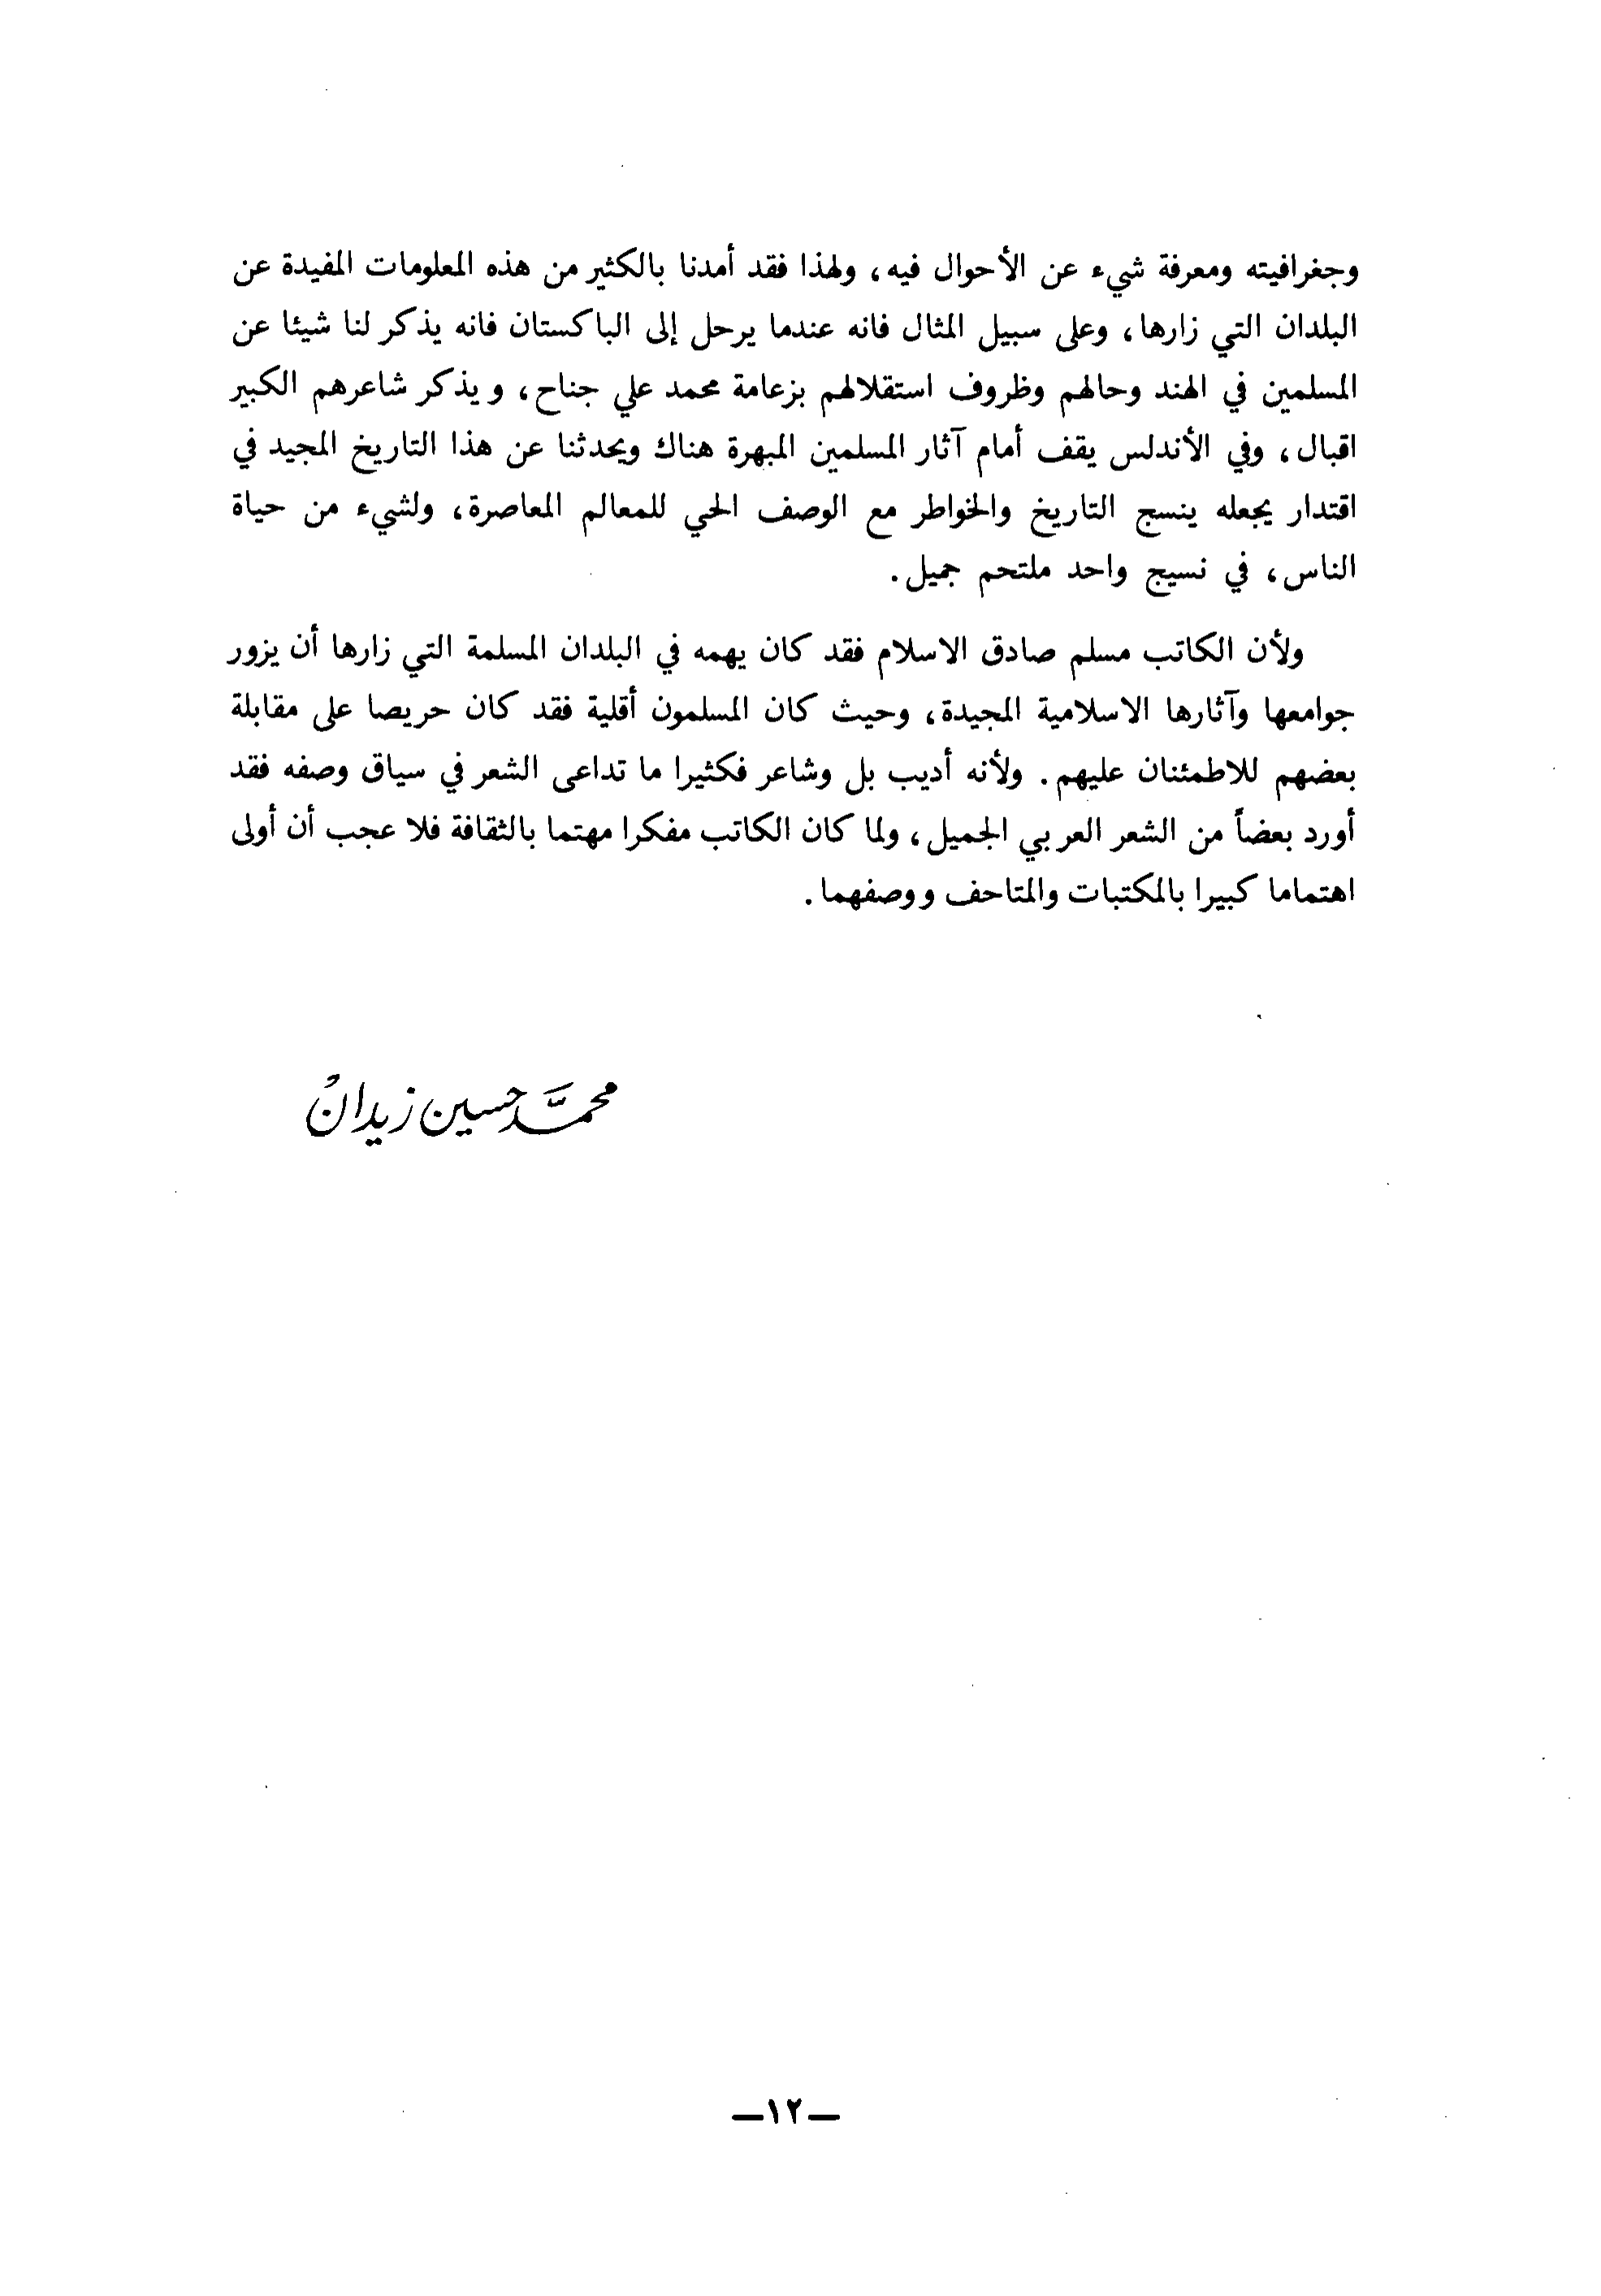 وجغرافيته ومعرفة شيء عن الأحوال فيه، ولهذا فقد أمدنا بالكثير من هذه المعلومات المفيدة عن
البلدان التي زارها، وعلى سبيل المثال فانه عندما يرحل إلى الباكستان فانه يذكر لنا شيئا عن
المسلمين في الهند وحالهم وظروف استقلالهم بزعامة محمد علي جناح، ويذكر شاعرهم الكبير
اقبال، وفي الأندلس يقف أمام آثار المسلمين المبهرة هناك ويحدثنا عن هذا التاريخ المجيد في
اقتدار يجعله ينسج التاريخ والخواطر مع الوصف الحي للمعالم المعاصرة، ولشيء من حياة
الناس، في نسيج واحد ملتحم جميل.
ولأن الكاتب مسلم صادق الاسلام فقد كان يهمه في البلدان المسلمة التي زارها أن يزور
جوامعها وآثارها الاسلامية المجيدة، وحيث كان المسلمون أقلية فقد كان حريصا على مقابلة
بعضهم للاطمئنان عليهم. ولأنه أديب بل وشاعر فكثيرا ما تداعى الشعر في سياق وصفه فقد
أورد بعضاً من الشعر العربي الجميل، ولما كان الكاتب مفكرا مهتما بالثقافة فلا عجب أن أولى
اهتماما كبيرا بالمكتبات والمتاحف ووصفهما.
محمَّد حسين زيدان
—١٢—